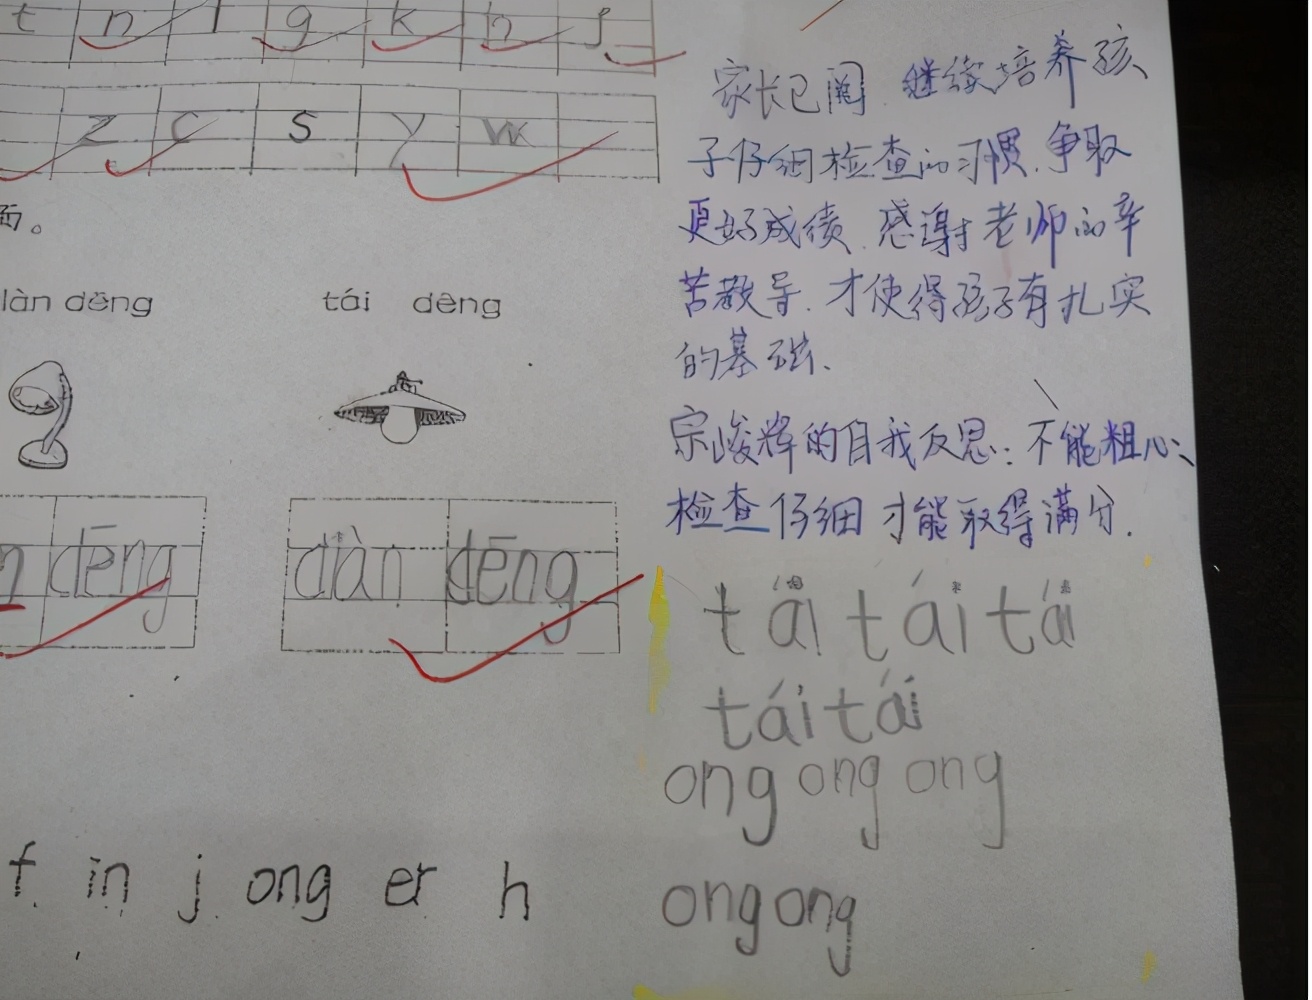 t n l g k h j
z c s y w
面。
家长已阅.继续培养孩
子仔细检查的习惯.争取
更好成绩.感谢老师的辛
苦教导.才使得孩子有扎实
的基础、
làn dēng tái dēng
宗峻辉的自我反思:不能粗心、
检查仔细才能取得满分.
dēng diàn dēng
tái tái tái
tái tái
ong ong ong
f in j ong er h
ong ong